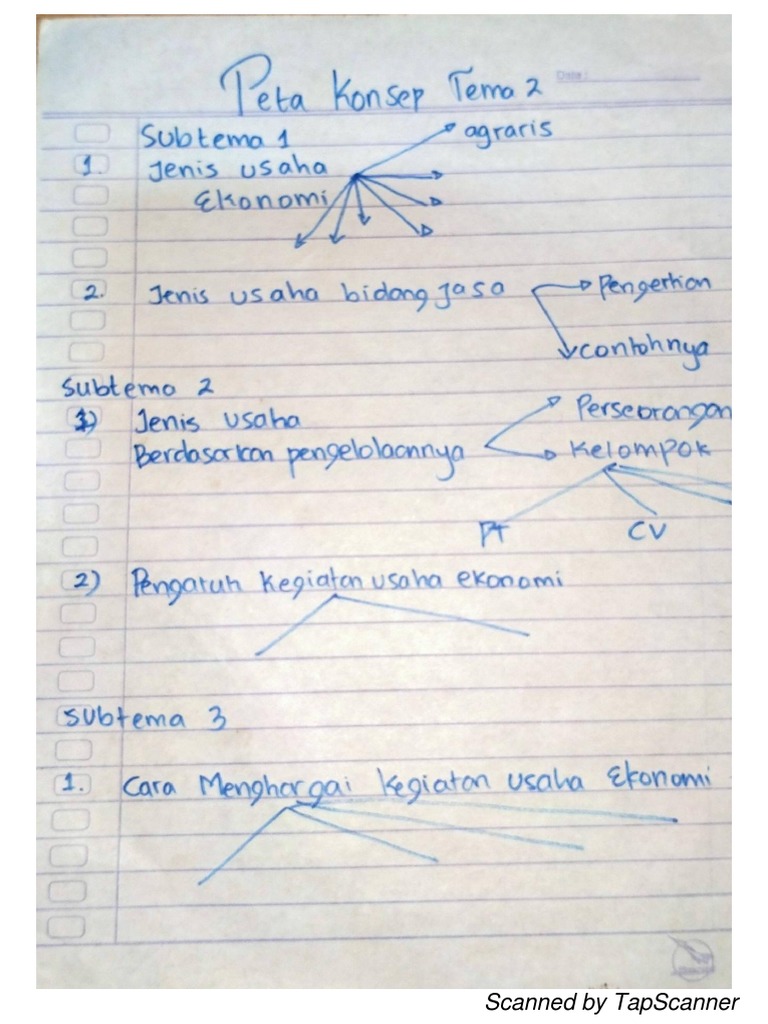 Peta Konsep Tema 2
Date :
Subtema 1
agraris
1. Jenis usaha
Ekonomi
2. Jenis usaha bidang jasa
Pengertian
contohnya
Subtema 2
1) Jenis usaha
Perseorangan
Berdasarkan pengelolaannya
Kelompok
PT
CV
2) Pengaruh kegiatan usaha ekonomi
Subtema 3
1. Cara Menghargai kegiatan usaha Ekonomi
Scanned by TapScanner